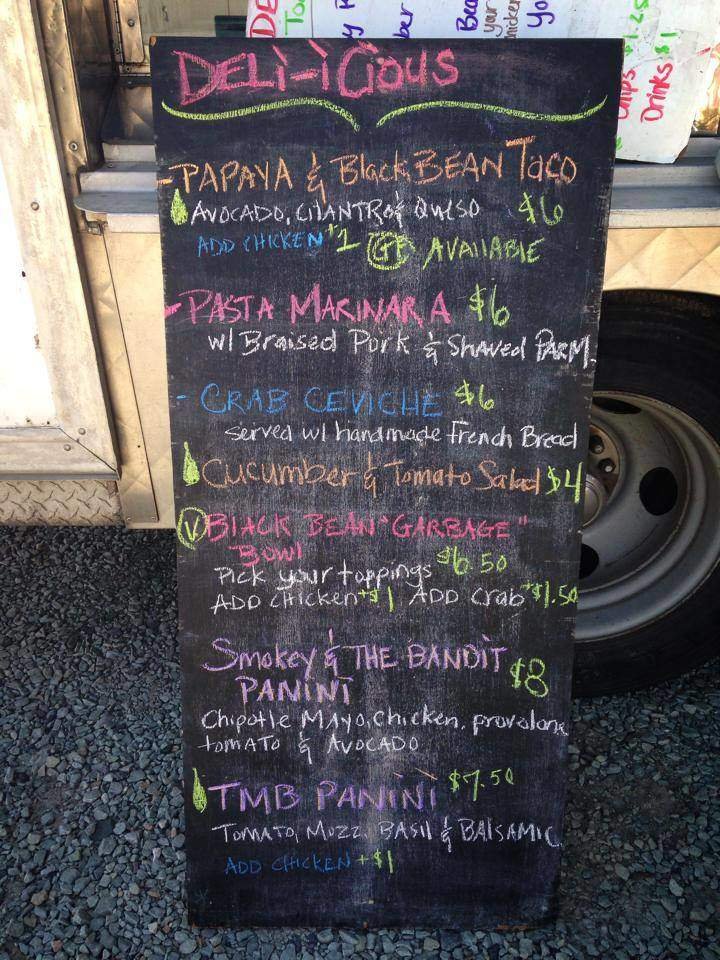 DELi-iCious
- PAPAYA & Black BEAN Taco
AVOCADO, CILANTRO & QUESO $6
ADD CHICKEN +1 GF AVAILABLE
- PASTA MARINARA $6
w/ Braised Pork & Shaved PARM.
- CRAB CEVICHE $6
served w/ handmade French Bread
Cucumber & Tomato Salad $4
V BLACK BEAN "GARBAGE"
Bowl $6.50
Pick your toppings
ADD CHICKEN +$1 ADD Crab +$1.50
Smokey & THE BANDIT
PANINI $8
Chipotle MAyo, Chicken, provolone
tomATo & AVOCADO
TMB PANINI $7.50
TOMATO, MOZZ. BASIL & BALSAMIC
ADD CHICKEN +$1
Drinks $1
1.25